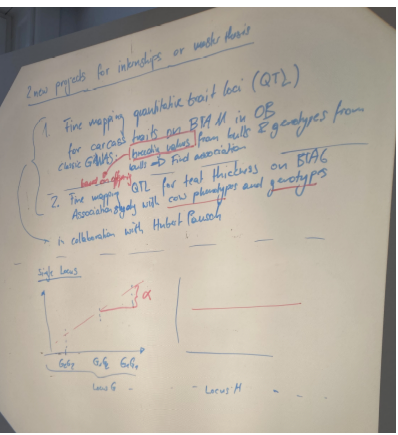 2 new projects for internships or master thesis
1. Fine mapping quantitative trait loci (QTL)
for carcass traits on BTA 11 in OB
classic GWAS: breeding values from bulls & genotypes from
bulls ⇒ Find association
2. Fine mapping QTL for teat thickness on BTA6
Association study with cow phenotypes and genotypes
in collaboration with Hubert Pausch
Single Locus
α
Locus G
Locus H